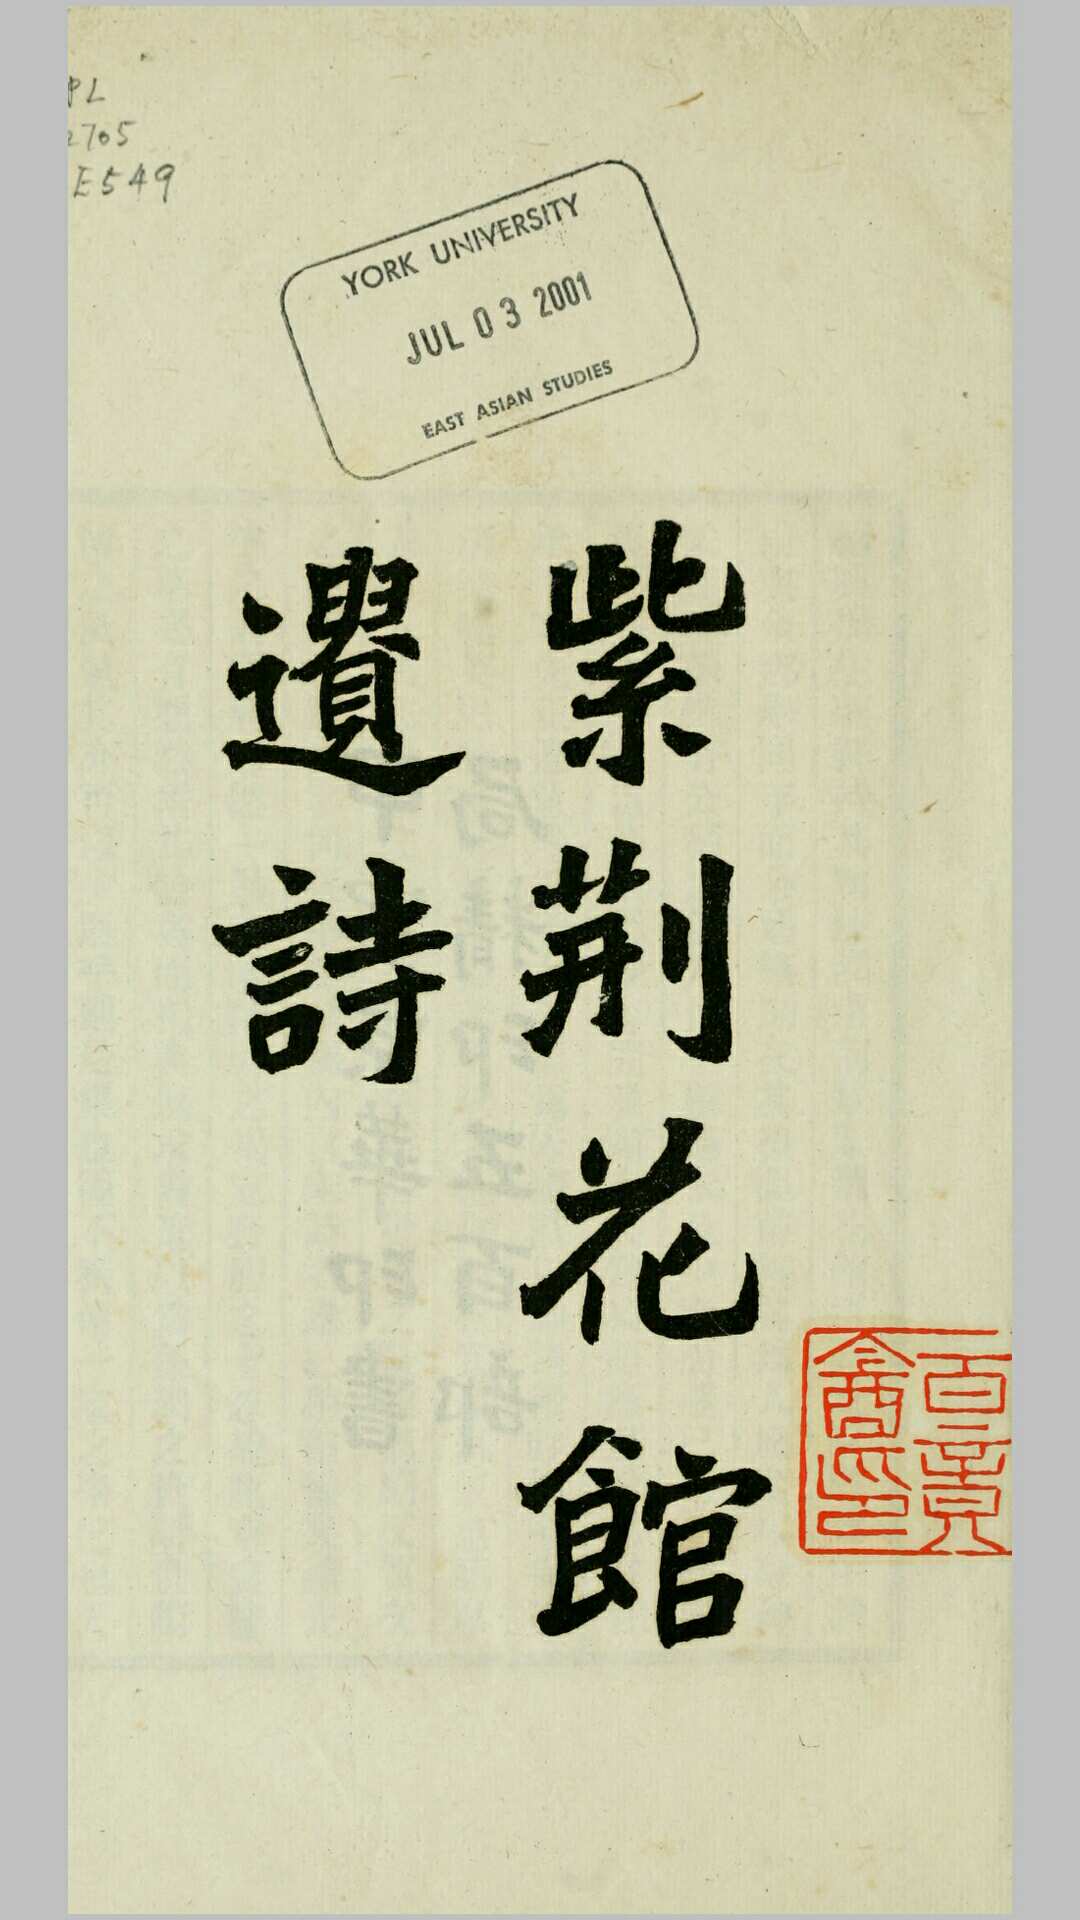 PL
2705
E549
YORK UNIVERSITY
JUL 03 2001
EAST ASIAN STUDIES
紫荆花館
遺詩